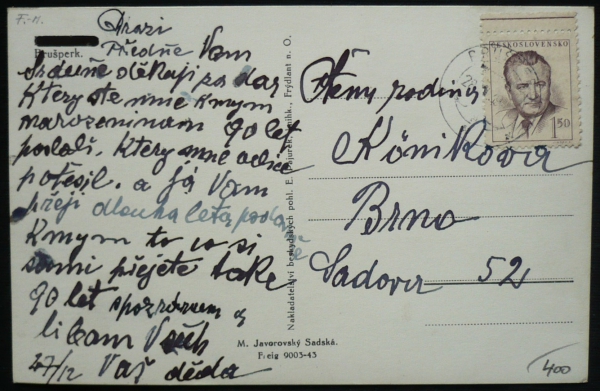 F.-M.
Drazí
Brušperk.
Předně Vám
srdečně děkuji za dar
který ste mně kmym
narozeninam 90 let
poslali. který mně velice
potěšil. a já Vám
přeji dlouha leta
kmym to co si
sami přejete take
90 let spozdravem a
libam Vseh
27/12 Vaš děda
Nakladatelství beskydských pohl. E. knihk., Frýdlant n. O.
M. Javorovský Sadská.
F: eig 9003-43
ČESKOSLOVENSKO
1.50
rodina
Köníkova
Brno
Sadova 52
400